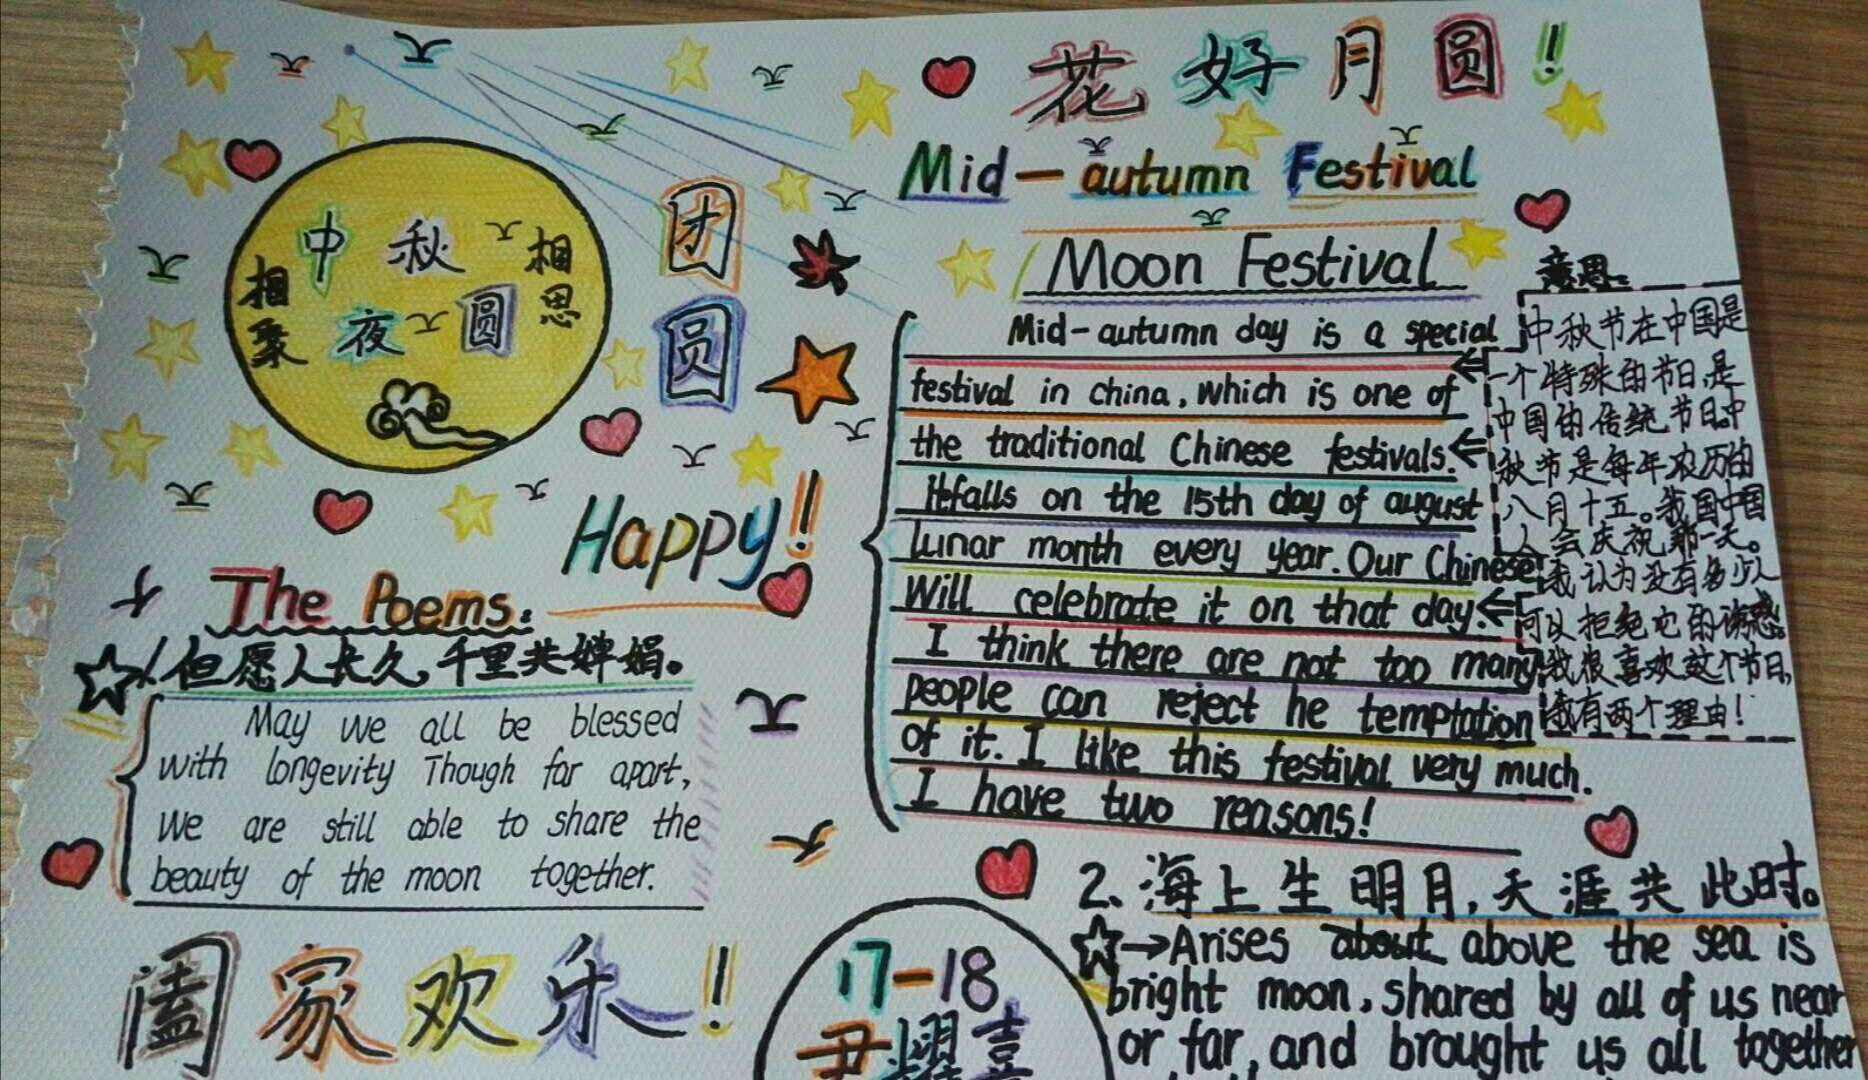 花好月圆!
Mid-autumn Festival
Moon Festival
中秋
夜圆
相聚
相思
团圆
Happy!
Mid-autumn day is a special
festival in china, which is one of
the traditional Chinese festivals.
Itfalls on the 15th day of august
lunar month every year. Our Chinese
Will celebrate it on that day.
I think there are not too many
people can reject he temptation
of it. I like this festival very much.
I have two reasons!
意思:
中秋节在中国是
一个特殊的节日,是
中国的传统节日.中
秋节是每年农历的
八月十五。我国中国
人会庆祝那一天。
我认为没有多少人
可以拒绝它的诱惑。
我很喜欢这个节日,
我有两个理由!
The Poems:
1/但愿人长久,千里共婵娟。
May we all be blessed
with longevity Though far apart,
We are still able to share the
beauty of the moon together.
阖家欢乐!
17-18
尹耀喜
2、海上生明月,天涯共此时。
Arises about above the sea is
bright moon, shared by all of us near
or far, and brought us all together